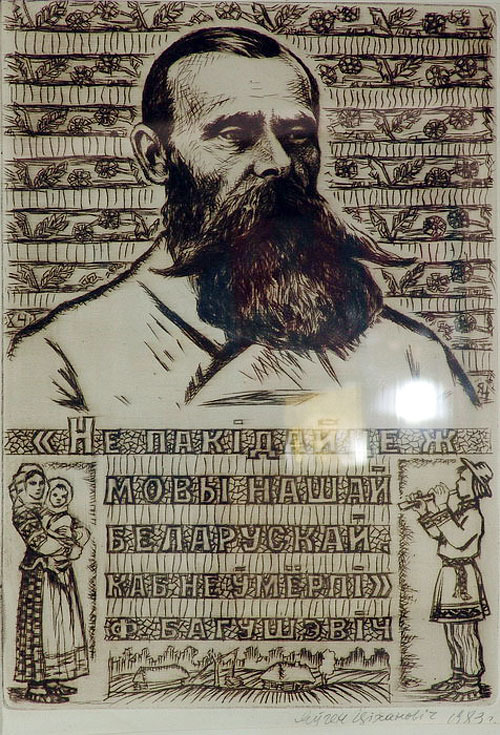 «НЕ ПАКІДАЙЦЕ Ж
МОВЫ НАШАЙ
БЕЛАРУСКАЙ,
КАБ НЕ ЎМЁРЛІ»
Ф. БАГУШЭВІЧ
Яўген Ціхановіч 1983 г.